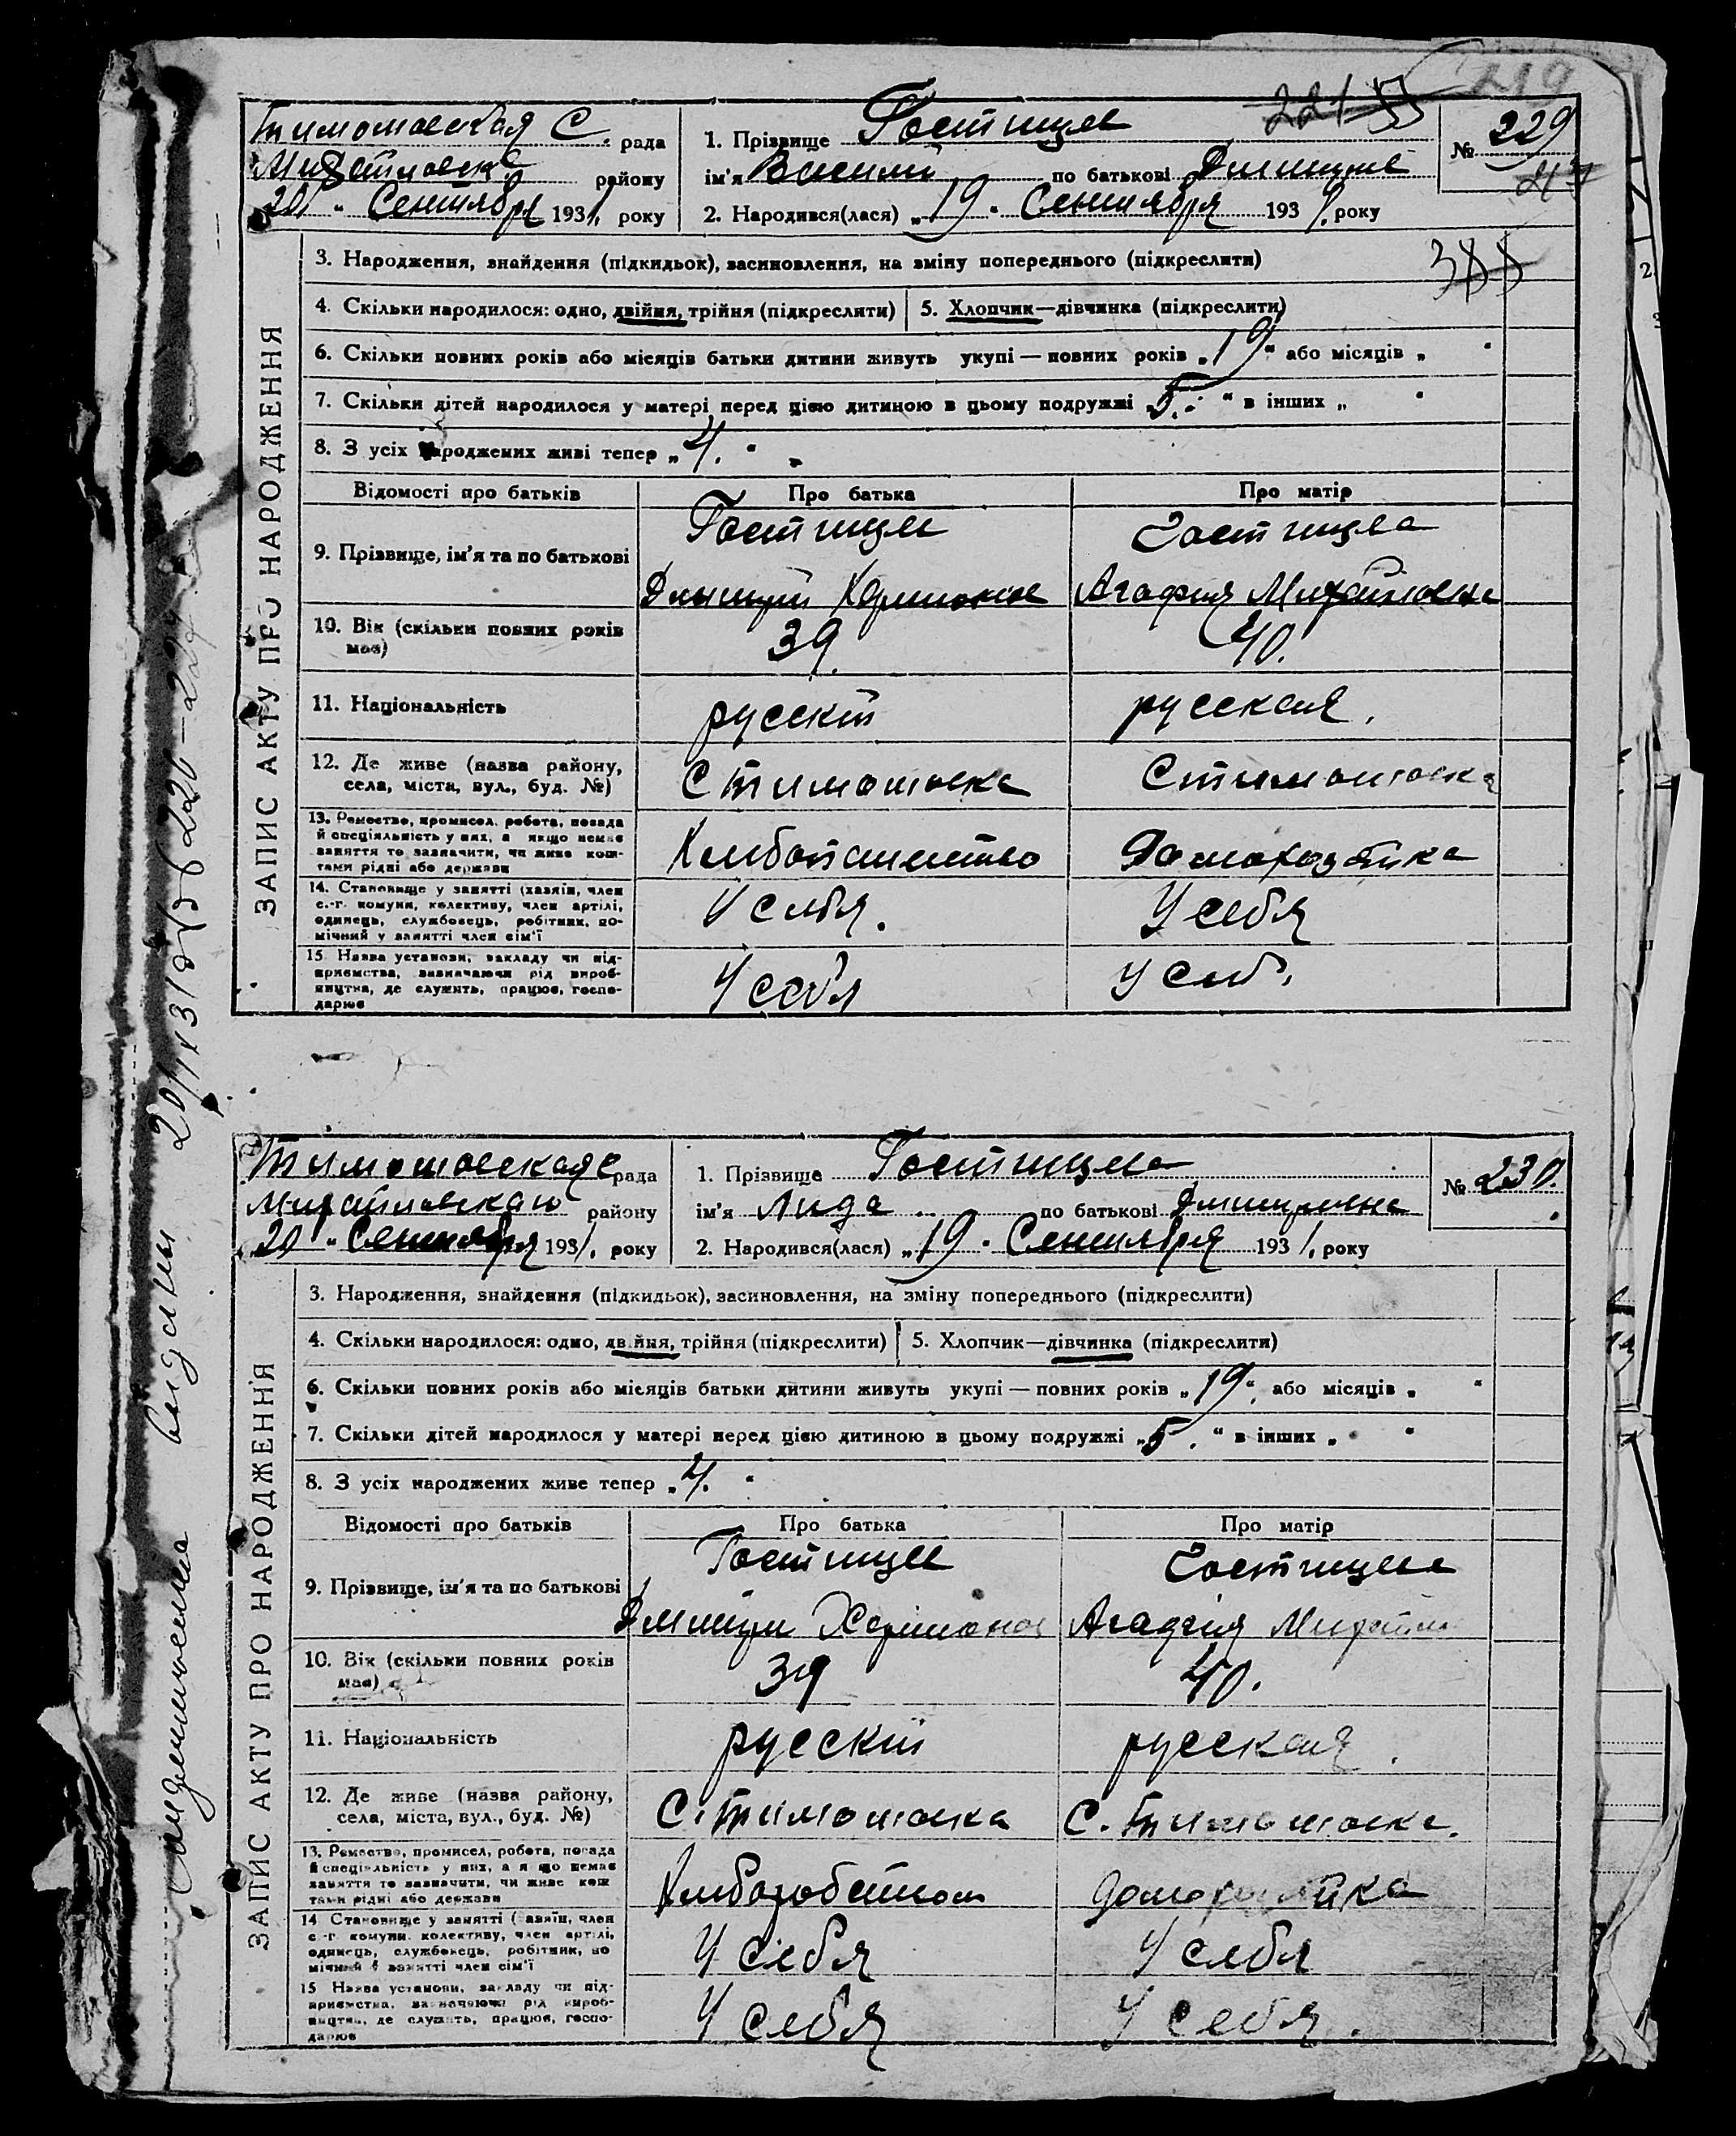 219
Тимошовская С. рада
района
20 " Сентября 1931. року
1. Прізвище Гостищев
ім'я Василий по батькові Дмитриев
2. Народився(лася) „19 " Сентября 1931. року
№ 229
ЗАПИС АКТУ ПРО НАРОДЖЕННЯ
3. Народження, знайдення (підкидьок), засиновлення, на зміну попереднього (підкреслити)
4. Скільки народилося: одно, двійня, трійня (підкреслити)
5. Хлопчик—дівчинка (підкреслити)
6. Скільки повних років або місяців батьки дитини живуть укупі — повних років „19" або місяців „ "
7. Скільки дітей народилося у матері перед цією дитиною в цьому подружжі „5." в інших „ "
8. З усіх народжених живі тепер „4. "
Відомості про батьків
Про батька
Про матір
9. Прізвище, ім'я та по батькові
Гостищев
Гостищева
Дмитрий
Агафия Михайловна
10. Вік (скільки повних років має)
39.
40.
11. Національність
русский
русская.
12. Де живе (назва району,
села, міста, вул., буд. №)
С Тимошовка
С Тимошовка
13. Ремество, промисел, робота, посада
й спеціяльність у них, а якщо немає
заняття то зазначити, чи живе кош-
тами рідні або держави
Хлебопашество
Домохозяйка
14. Становище у занятті (хазяїн, член
с.-г. комуни, колективу, член артілі,
одинець, службовець, робітник, по-
мічний у занятті член сім'ї
У себя.
У себя
15 Назва установи, закладу чи під-
приємства, зазначаючи рід вироб-
ництва, де служить, працює, госпо-
дарює
У себя
У себ.
Тимошовская С рада
Михайловского району
20 " Сентября 1931. року
1. Прізвище Гостищева
ім'я Лида по батькові Дмитриевна
2. Народився(лася) „19 " Сентября 1931. року
№ 230.
ЗАПИС АКТУ ПРО НАРОДЖЕННЯ
3. Народження, знайдення (підкидьок), засиновлення, на зміну попереднього (підкреслити)
4. Скільки народилося: одно, двійня, трійня (підкреслити)
5. Хлопчик—дівчинка (підкреслити)
6. Скільки повних років або місяців батьки дитини живуть укупі — повних років „19" або місяців „ "
7. Скільки дітей народилося у матері перед цією дитиною в цьому подружжі „5." в інших „ "
8. З усіх народжених живе тепер „4. "
Відомості про батьків
Про батька
Про матір
9. Прізвище, ім'я та по батькові
Гостищев
Гостищева
Дмитрий
Агафия
10. Вік (скільки повних років має)
39
40.
11. Національність
русский
русская.
12. Де живе (назва району,
села, міста, вул., буд. №)
С. Тимошовка
С. Тимошовка.
13. Ремество, промисел, робота, посада
й спеціяльність у них, а якщо немає
заняття то зазначити, чи живе кош-
тами рідні або держави
Домохозяйка
14 Становище у занятті (хазяїн, член
с.-г. комуни, колективу, член артілі,
одинець, службовець, робітник, по-
мічний у занятті член сім'ї
У себя
У себя
15 Назва установи, закладу чи під-
приємства, зазначаючи рід вироб-
ництва, де служить, працює, госпо-
дарює
У себя
У себя.
выданы 20/IX 31